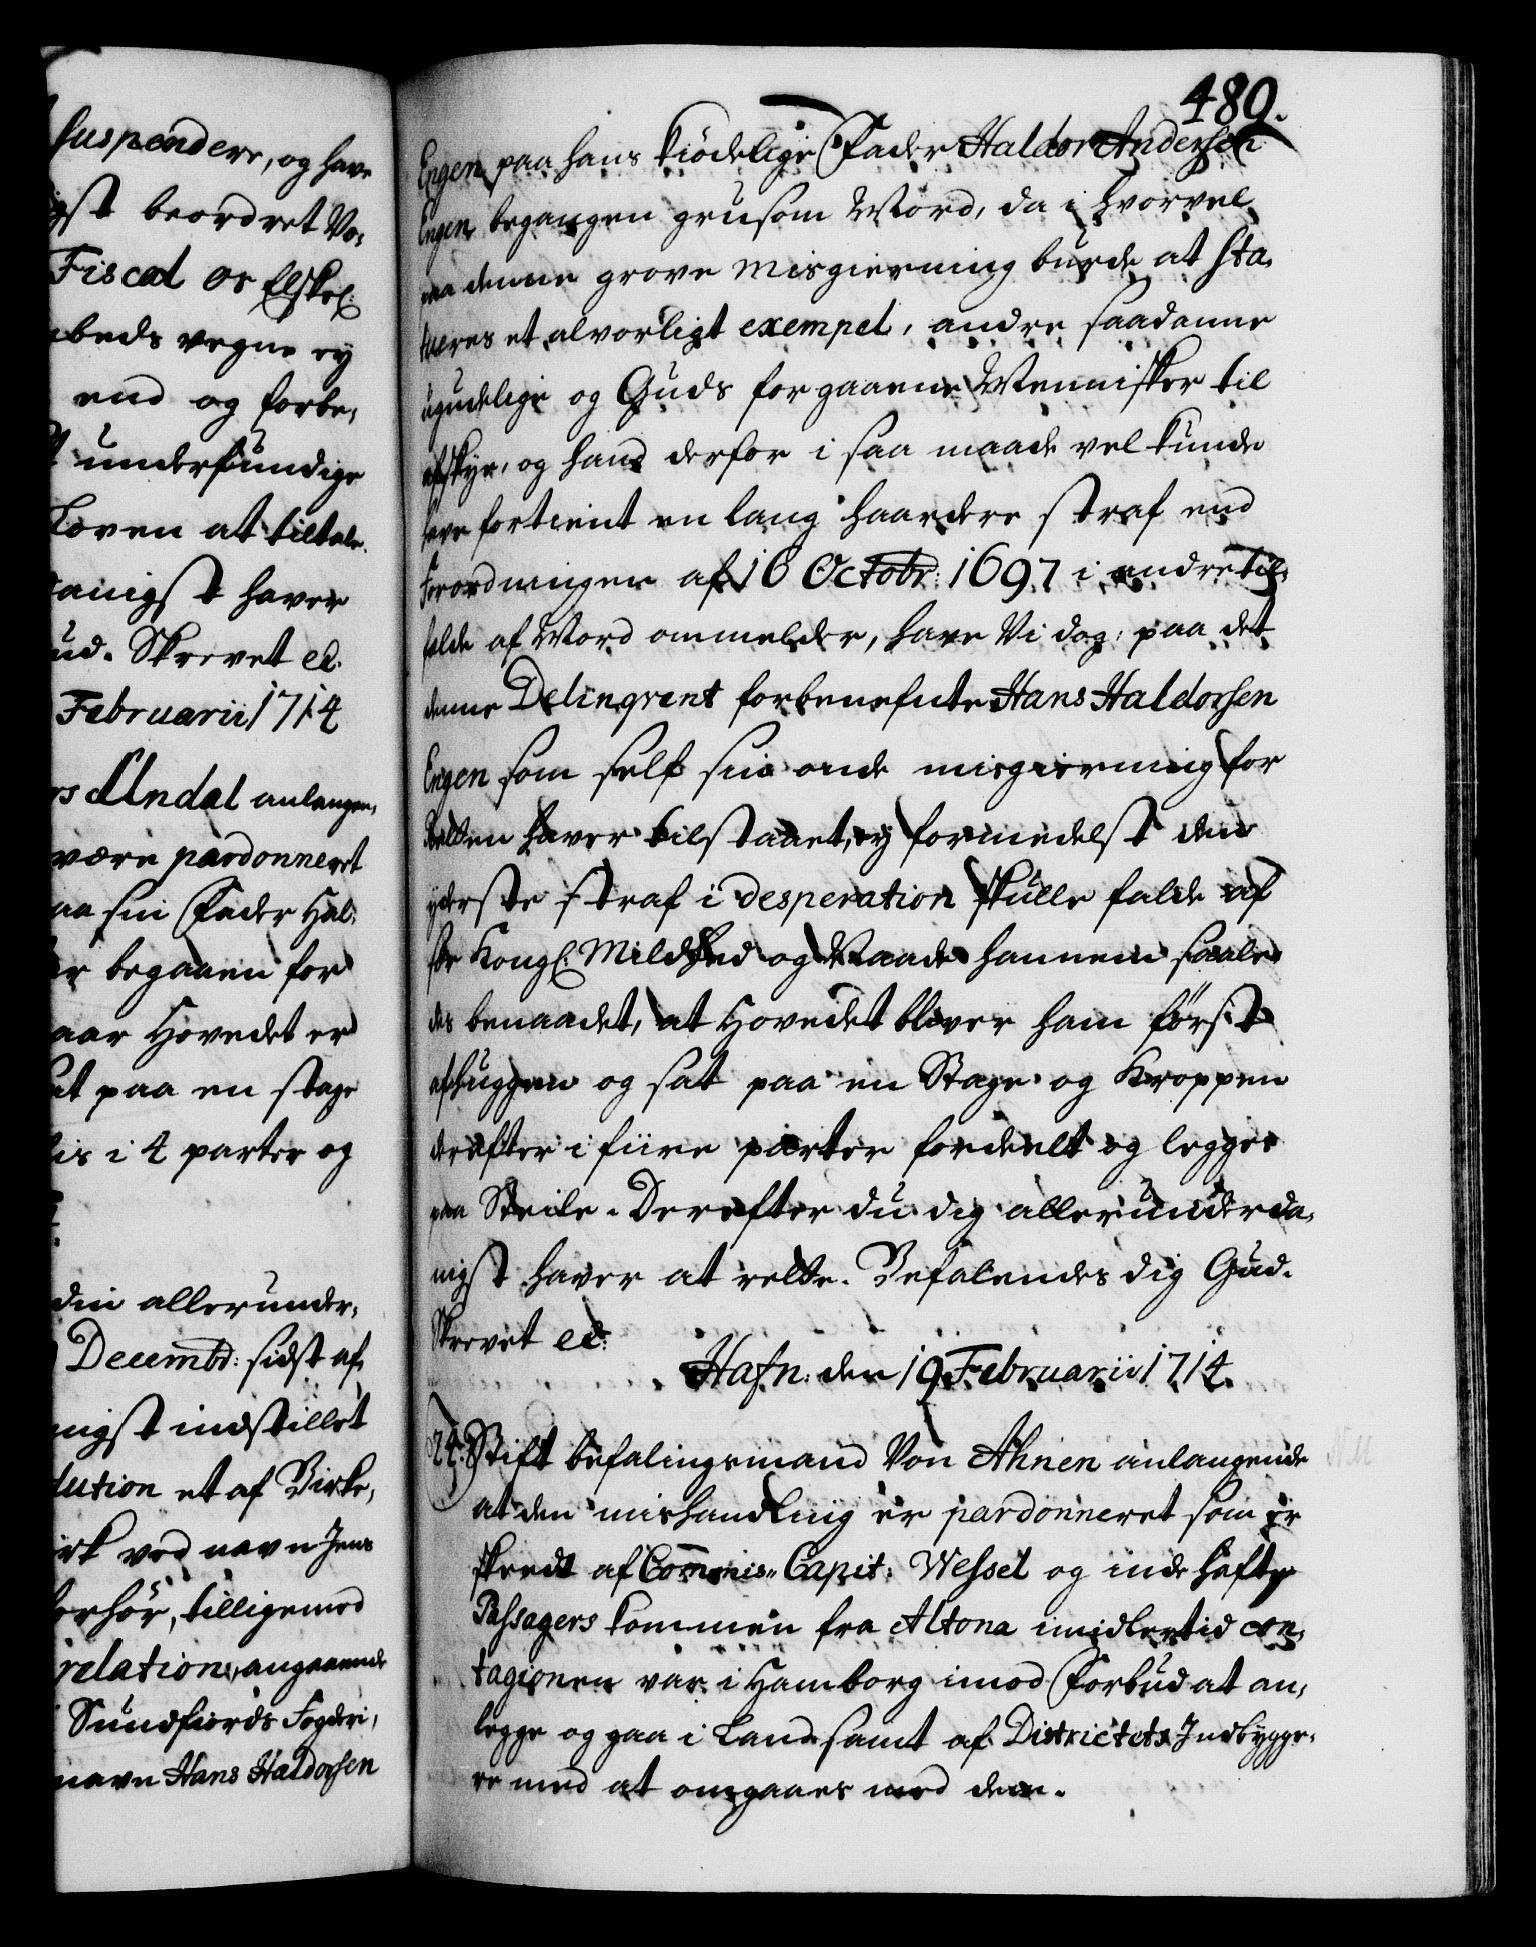 suspendere, og have
gst beordret Vo,
Fiscal os Elskel:
beds vegne ej
end og forbe,
underfundige
Loven at tiltale.
tanigst haver
ud. Skrevet ec.
Februarii 1714
rs Undal anlangen,
være pardonneret
aa sin Fader Hal,
er begaaen for
aar Hovedet er
at paa en stage
lis i 4 parter og
din allerunder,
Decembr: sidst af,
nigst indstillet
lution et af Birke,
irk ved navn Jens
forhör, tilligemed
relation, angaaende
Sundfiords Fogderi,
navn Hans Haldorsen
489.
Engen paa hans kiödelige Fader Haldor Andersen
Engen begangen grusom Mord, da i hvorvel
paa denne grove misgierning burde at sta,
tueres et alvorligt exempel, andre saadanne
ugudelige og Guds forgaaene Mennisker til
afskye, og hand derfor i saa maade vel kunde
have fortient en lang haardere straf end
Forordningen af 16 Octobr: 1697 i andre til,
felde af Mord ommelder, have Vi dog, paa det
denne Delinqvent forbenefnte Hans Haldorsen
Engen som self sin onde misgierning for
Retten haver tilstaaet, ej formedelst den
yderste straf i desperation skulle falde af
sær Kongl: Mildhed og Naade hannem saale
des benaadet, at Hovedet bliver ham först
afhuggen og sat paa en Stage og Kroppen
derefter i fiire parter fordeelt og legges
paa Steile. Derefter du dig allerunderda,
nigst haver at rette. Befalendes dig Gud.
Skrevet ec:
Hafn: den 19 Februarii 1714.
24. Stift befalingsmand Von Ahnen anlangende
at den mishandling er pardonneret som er
skeedt af Commis,, Capit: Wessel og inde hafte
Passagers kommen fra Altona imidlertid con,
tagionen var i Hamborg imod Forbud at an,
legge og gaa i Land samt af Districtets Indbygge,
re med at omgaaes med dem.